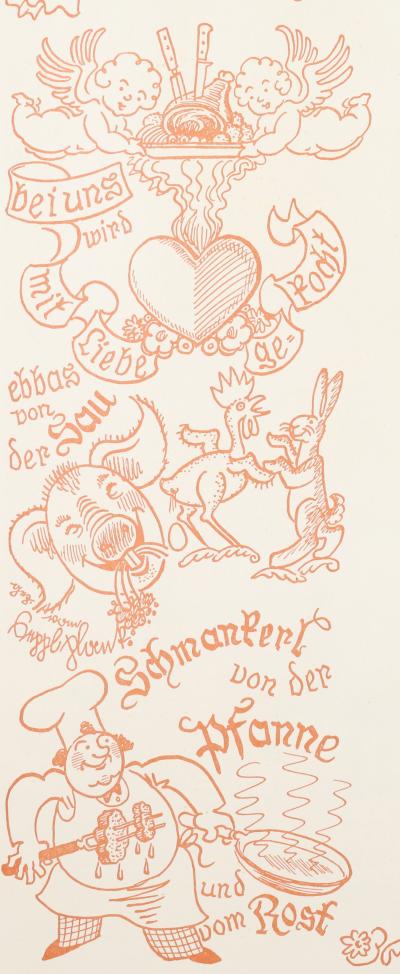 bei uns
wird
mit
Liebe
ge=
kocht
ebbas
von
der Sau
Schmankerl
von der
Pfanne
und
vom Rost